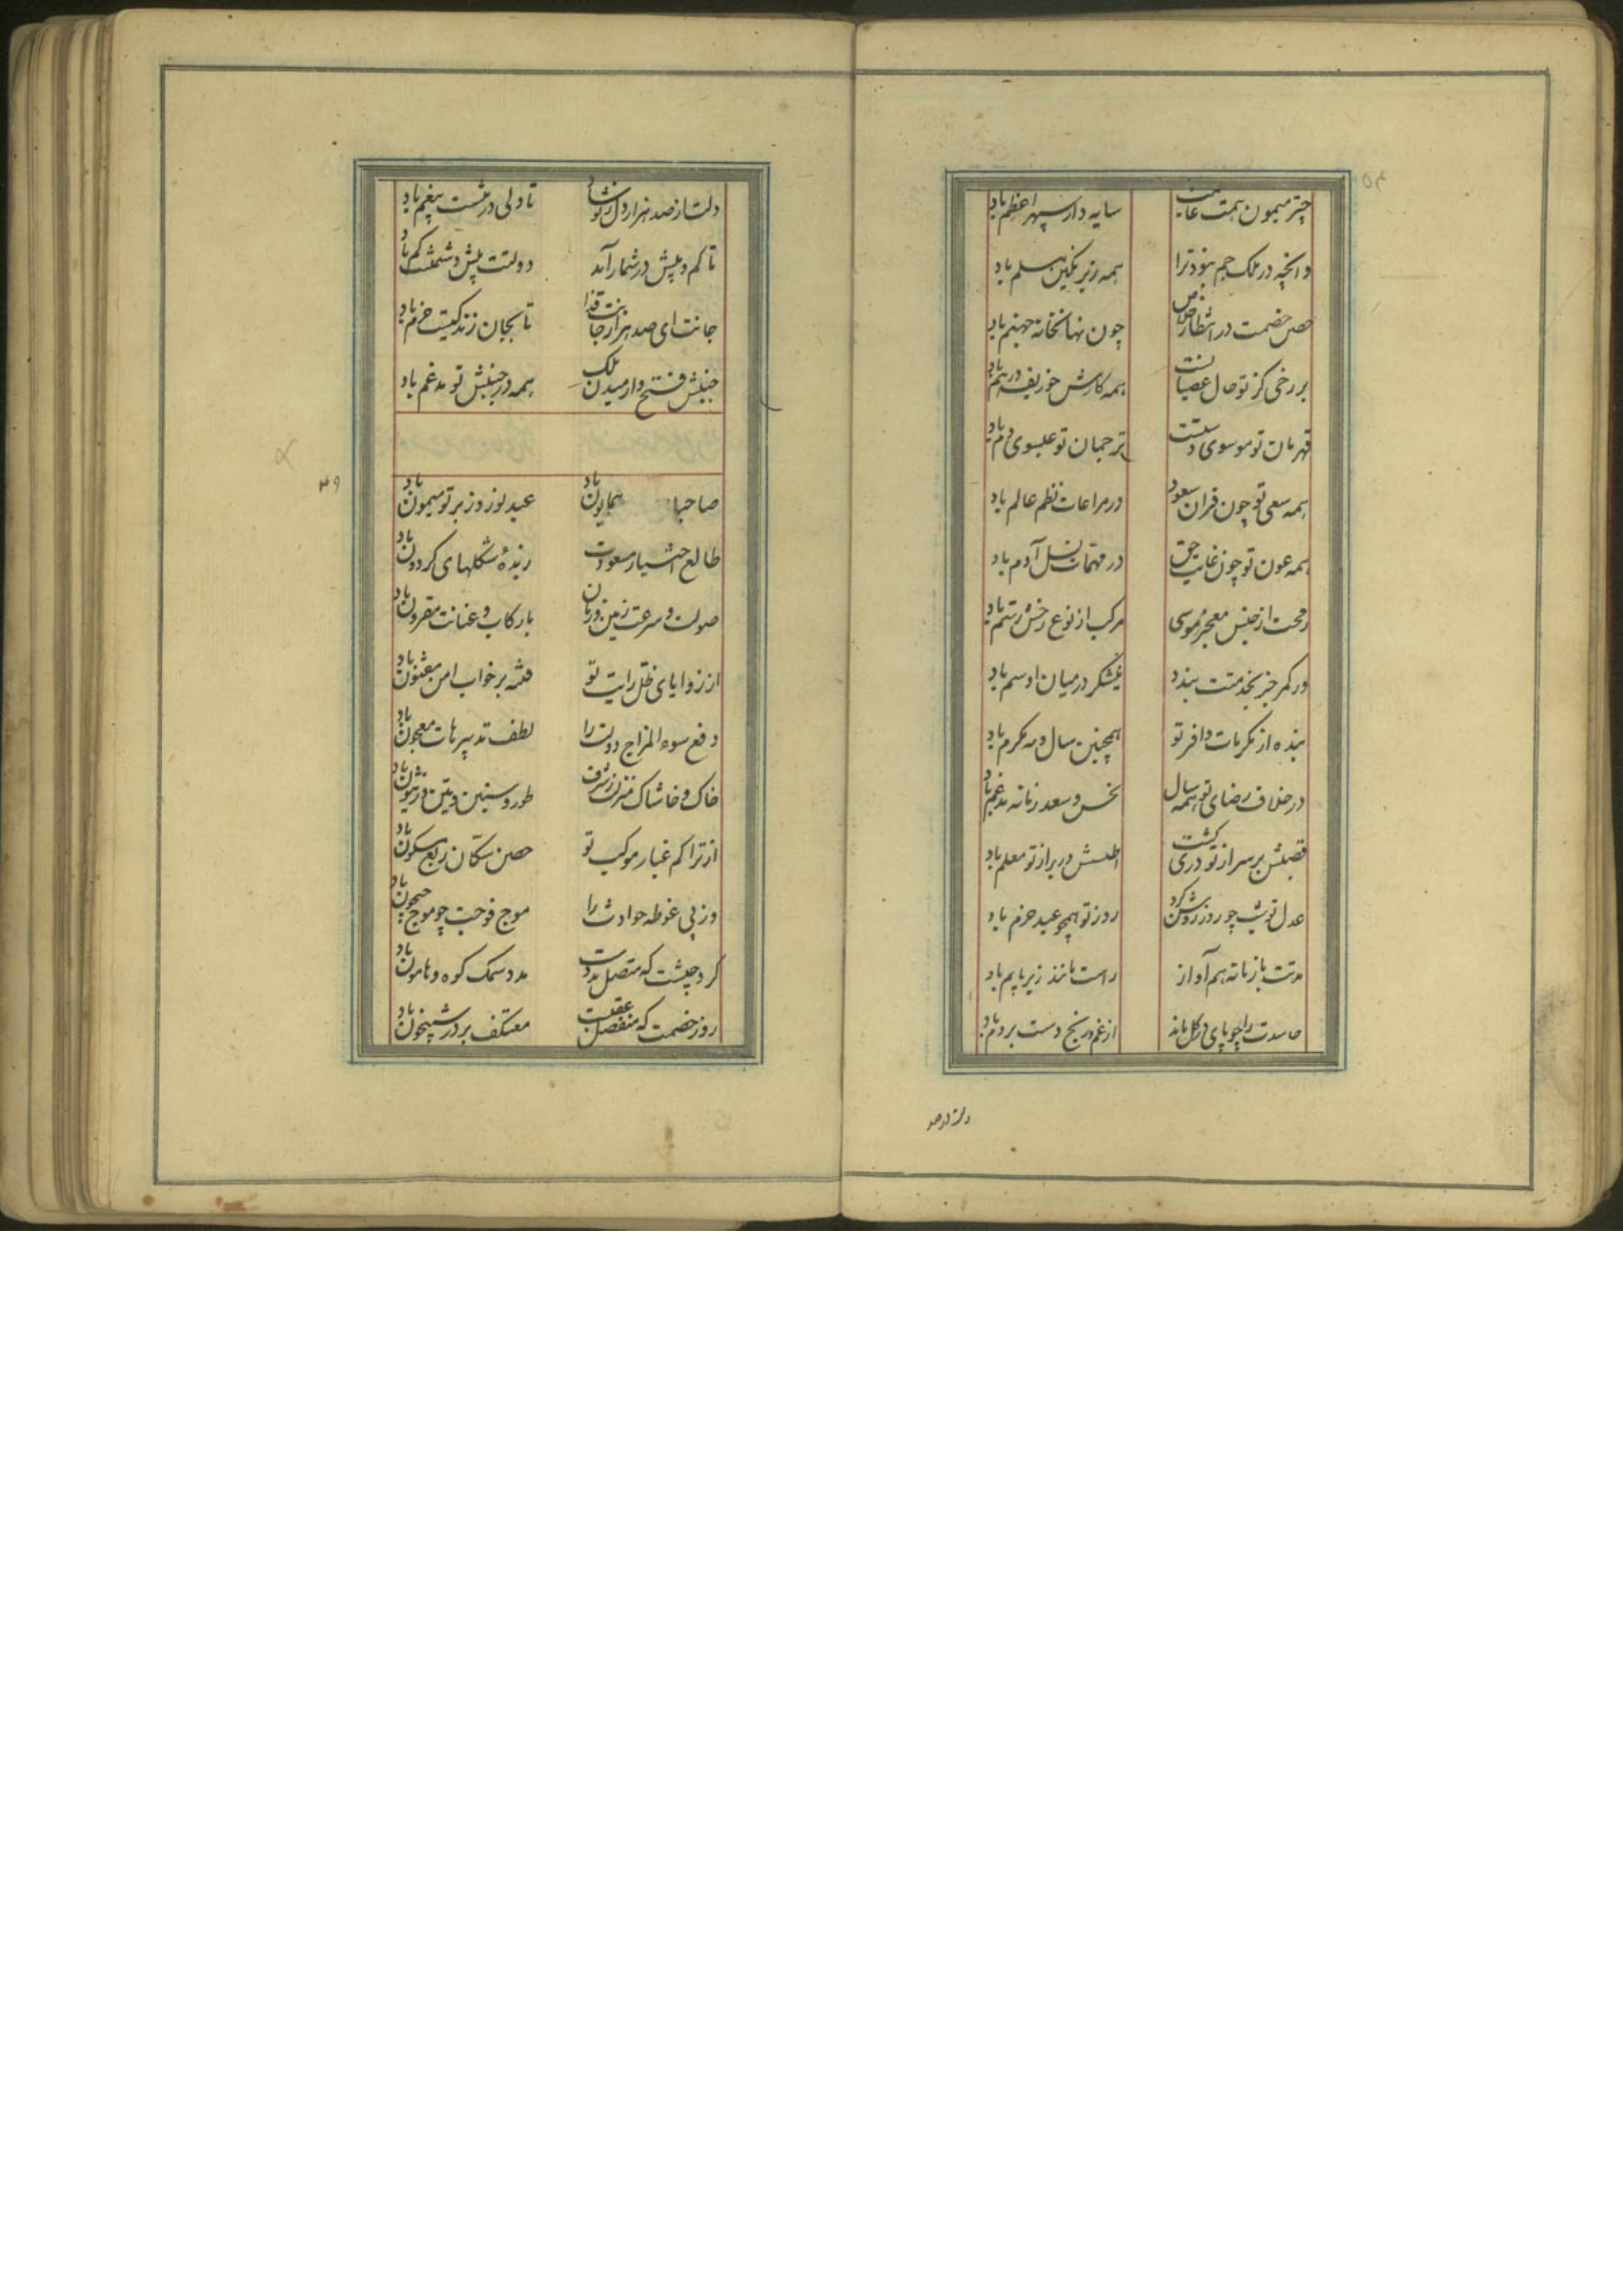 چتر میمون همت عالیت سایه‌دار سپهر اعظم باد
وانچه در ملک جم نبود ترا همه زیر نگین مسلم باد
حصن خصمت در انتظار خلاص چون نهانخانه جهنم باد
بر رخی کز تو خال عصیانست همه کارش چو زلف درهم باد
قهرمان تو موسوی دستت ترجمان تو عیسوی دم باد
همه سعی تو چون قران سعود در مراعات نظم عالم باد
همه عون تو چون عنایت حق در مهمات نسل آدم باد
رمحت از جنس معجز موسی مرکب از نوع رخش رستم باد
ور کمر جز بخدمتت بندد نیشکر در میان او سم باد
بنده از مکرمات وافر تو همچنین سال و مه مکرم باد
در خلاف رضای تو همه سال نحس و سعد زمانه مدغم باد
قصبش بر سر از تو دری گشت اطلسش در بر از تو معلم باد
عدل تو شب چو روز روشن کرد روز تو همچو عید خرم باد
مدتت با زمانه هم آواز راست مانند زیر با بم باد
حاسدت را چو پای در گل ماند از غم و رنج دست بر دم باد
دلت از صد
دلت از صد هزار دل نو شاد تا دلی در مشیت بیغم باد
تا کم و بیش در شمار آمد دولتت بیش و دشمنت کم باد
جانت ای صد هزار جانت فدا تا بجان زندگیست خرم باد
جنبش فتح و آرمیدن ملک همه در جنبش تو مدغم باد
۴۹
صاحبا همایون باد عید نوروز بر تو میمون باد
طالع اختیار مسعودت زبده شکلهای گردون باد
صولت و سرعت زمین و زمان با رکاب و عنانت مقرون باد
از زوایای ظل رایت تو فتنه بر خواب امن مفتون باد
دفع سوء المزاج دولت را لطف تدبیرهات معجون باد
خاک و خاشاک منزلت ز شرف طور سینین و تین و زیتون باد
از تراکم غبار موکب تو حصن سکان ربع مسکون باد
وز پی غوطه حوادث را موج فوجت چو موج جیحون باد
گرد جیشت که متصل مددست مدد سمک کوه و هامون باد
روز خصمت که منفصل عقبست معتکف بر در شبیخون باد